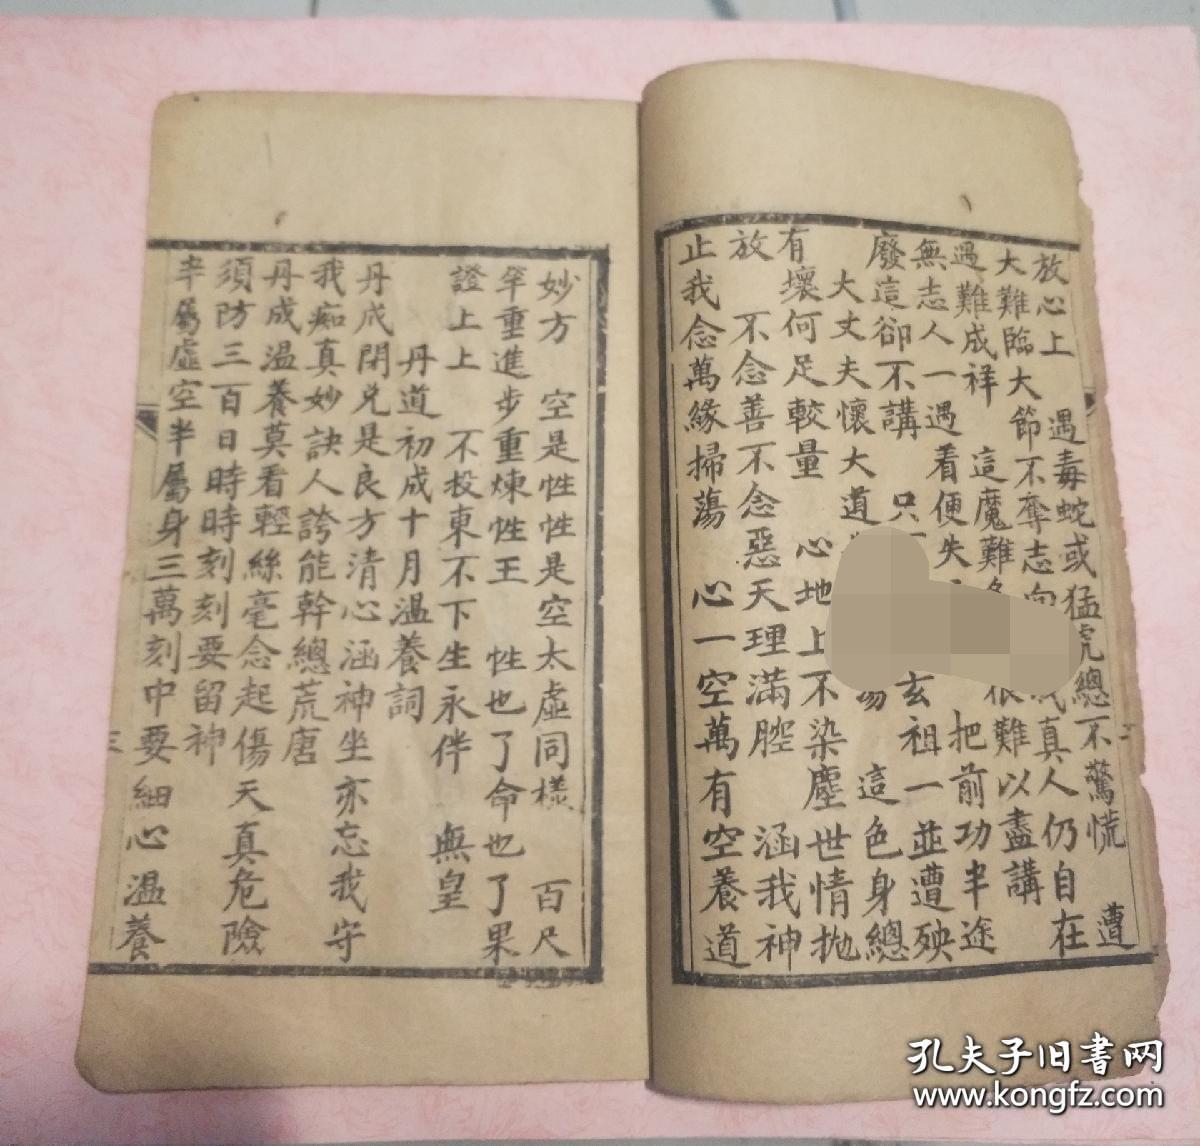 放心上　遇毒蛇或猛虎總不驚慌　遭
大難臨大節不奪志向 成真人仍自在
遇難成祥　這魔難 很難以盡講
無志人一遇看便失 把前功半途
廢這卻不講　只 玄祖一並遭殃
大丈夫懷大道 這色身總
有壞何足較量　心地上不染塵世情拋
放　不念善不念惡天理滿腔　涵我神
止我念萬緣掃蕩　心一空萬有空養道
妙方　空是性性是空太虛同樣　百尺
竿重進步重煉性王　性也了命也了果
證上上　不投東不下生永伴　無皇
丹道初成十月溫養詞
丹成閉兌是良方清心涵神坐亦忘我守
我痴真妙訣人誇能幹總荒唐
丹成溫養莫看輕絲毫念起傷天真危險
須防三百日時時刻刻要留神
半屬虛空半屬身三萬刻中要細心溫養
三
孔夫子旧书网
www.kongfz.com